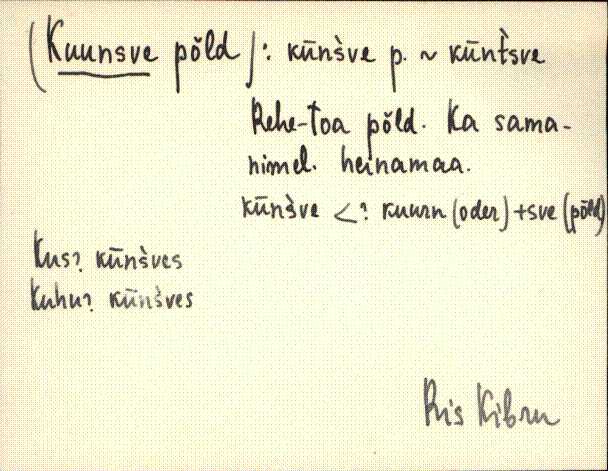 (Kuunsve põld): kūns̀ve p. ~ kūnt̀sve
Rehe-toa põld. Ka sama-
nimel. heinamaa.
kūns̀ve <? kuurn (oder) + sve (põld)
Kus? kūns̀ves
Kuhu? kūns̀ves
Ris Kibru